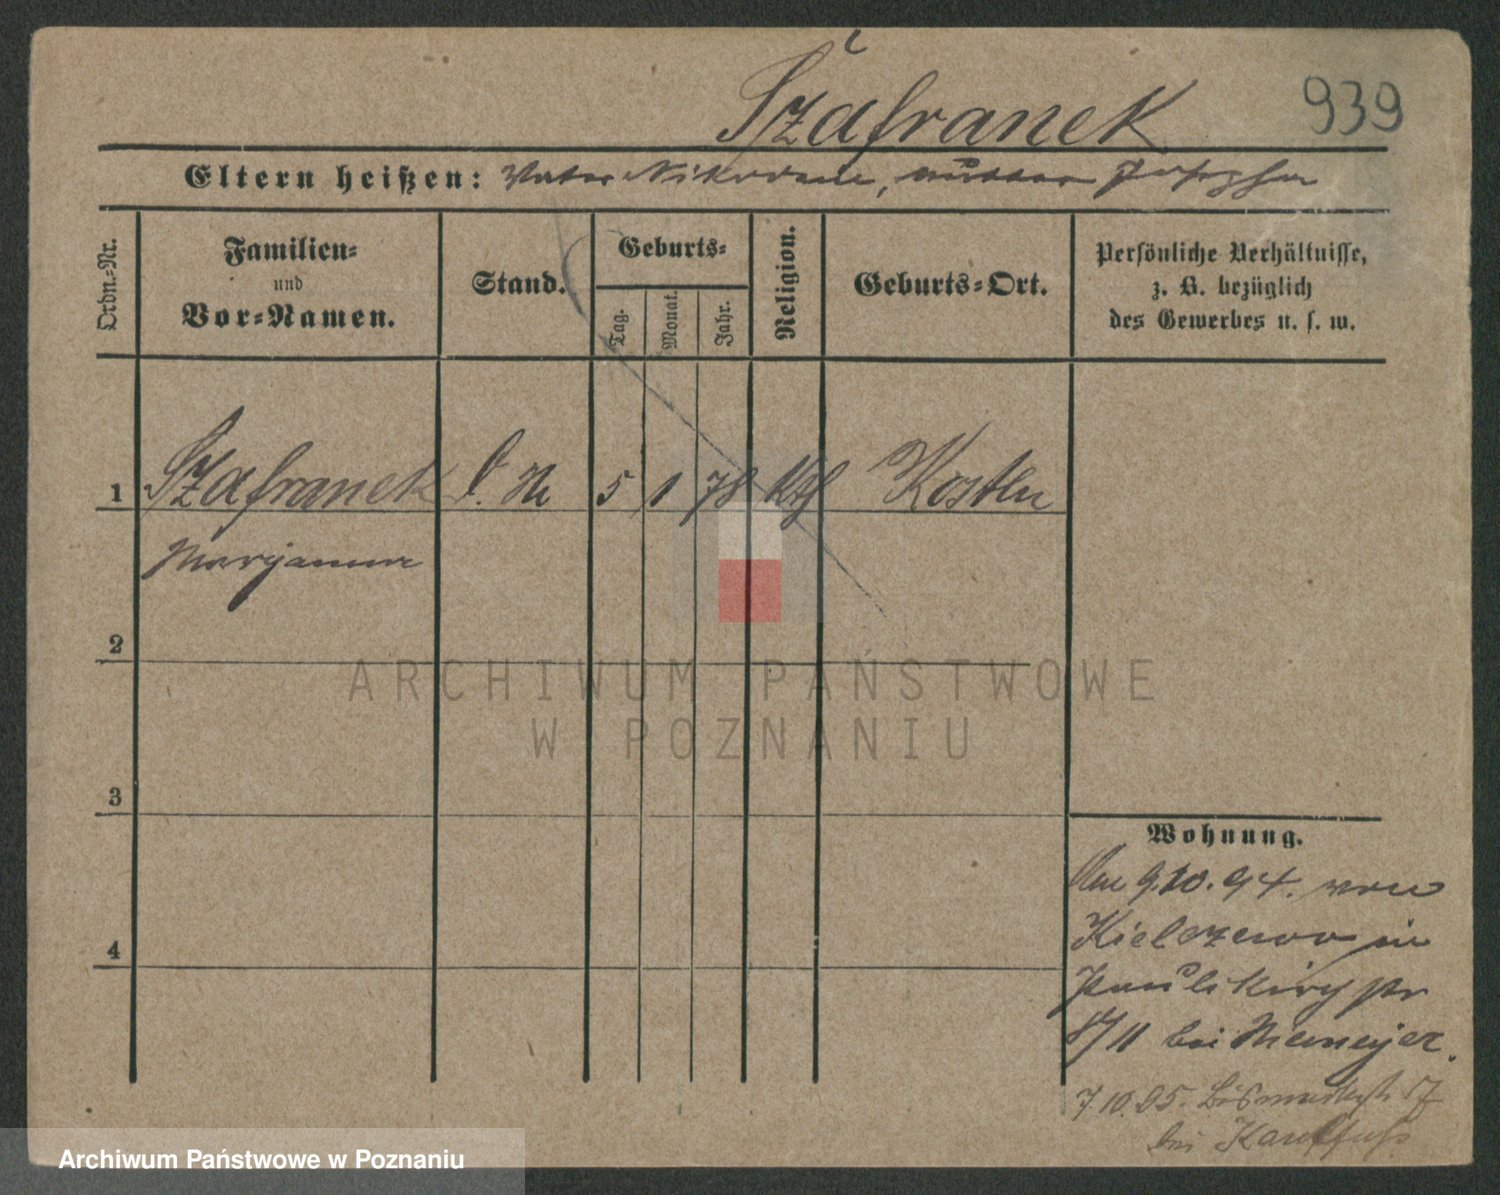 Szafranek 939
Eltern heißen: Vater Nikodem, Mutter Josepha
Ordn.-Nr.
Familien-
und
Vor-Namen.
Stand.
Geburts-
Tag.
Monat.
Jahr.
Religion.
Geburts-Ort.
Persönliche Verhältnisse,
z. B. bezüglich
des Gewerbes u. s. w.
1 Szafranek 5 1 78 kth Kosten
Maryanna
2
3
4
ARCHIWUM PAŃSTWOWE
W POZNANIU
Wohnung.
Am 9.10.94. von
Kielczewo in
Paulikirchstr
8/II bei Niemeyer.
7.10.95. Bismarckstr
bei
Archiwum Państwowe w Poznaniu